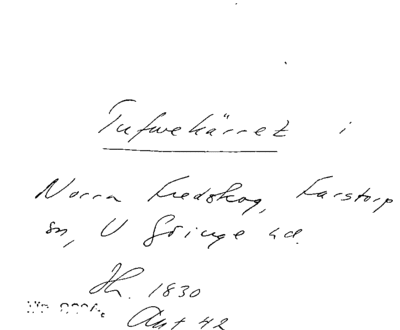 Tufwekärret i
Norra Fredskog, Farstorp
sn, V Göinge hd.
Jh. 1830
Ant 42